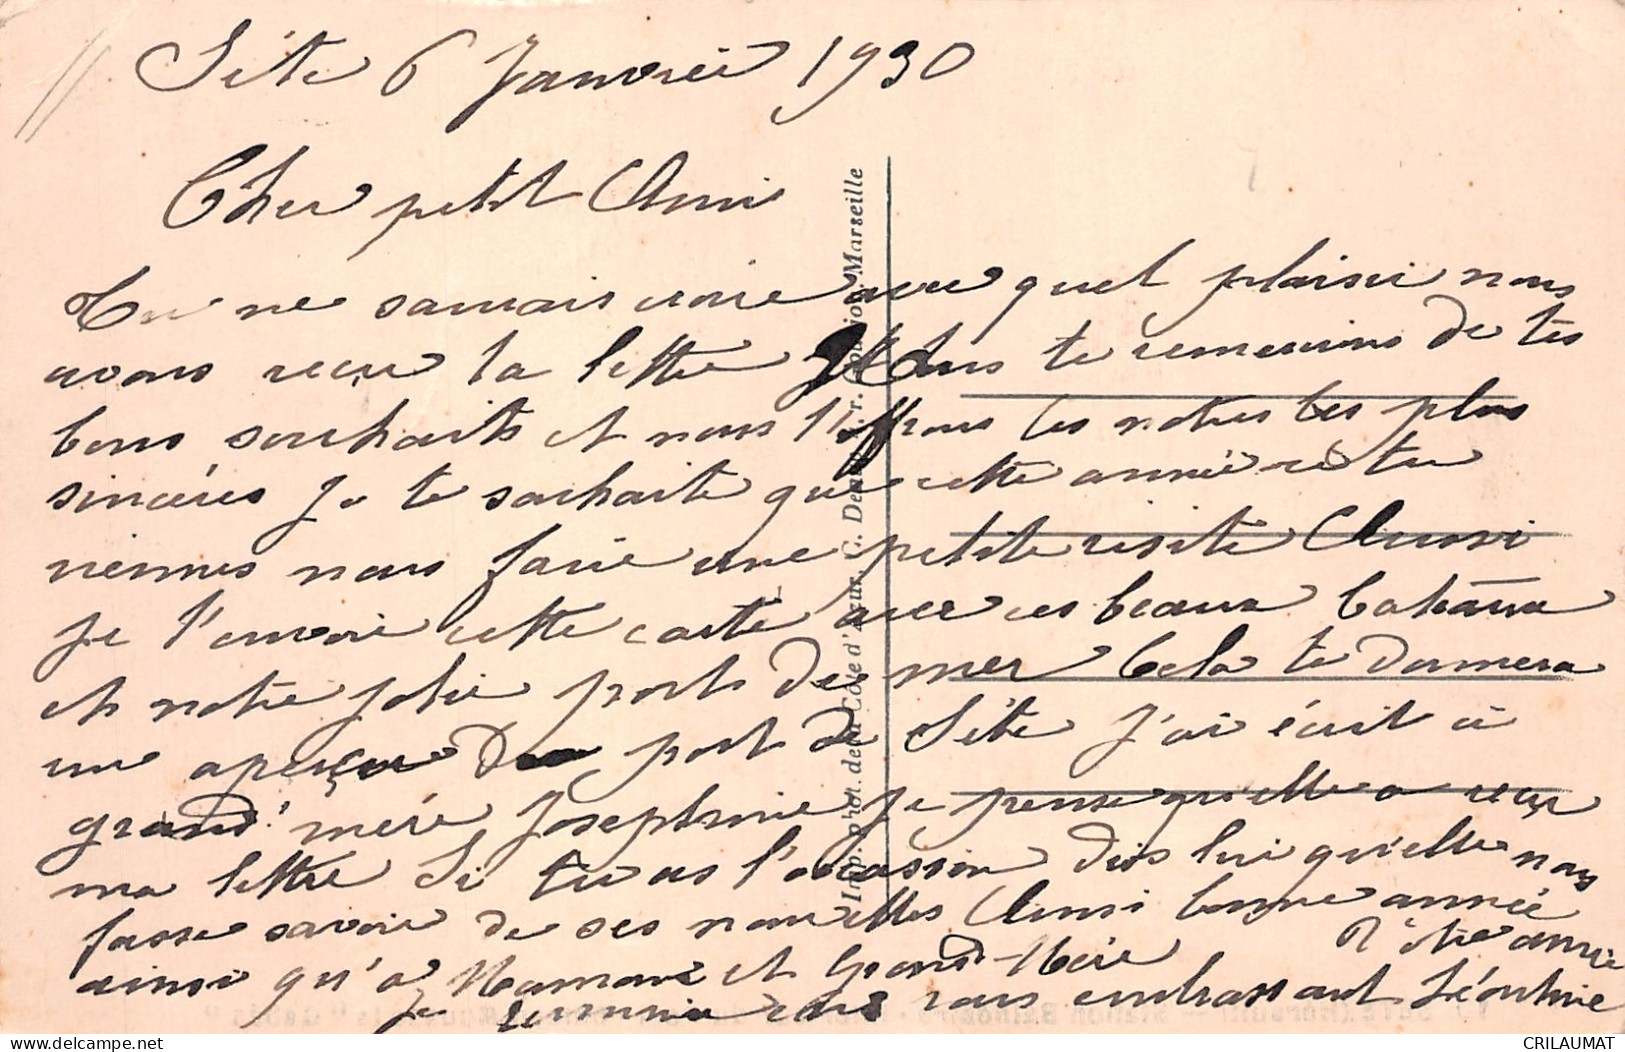 Sète 6 Janvier 1930
Cher petit Ami
Tu ne saurais croire avec quel plaisir nous
avons reçu ta lettre Nous te remercions de tes
bons souhaits et nous t'offrons les notres les plus
sincéres Je te souhaite que cette année-ci tu
viennes nous faire une petite visite Aussi
je t'envoie cette carte avec ces beaux bateaux
et notre jolie port de mer Cela te donnera
un aperçu du port de Sète J'ai écrit à
grand'mére Josephine je pense qu'elle a reçu
ma lettre Si tu as l'occasion dis lui qu'elle nous
fasse savoir de ses nouvelles Aussi bonne année
ainsi qu'a Maman et Grand-Mére Votre amie
Je termine en vous embrassant Léontine
Imp. phot. de la Côte d'Azur, C. Marseille
CRILAUMAT